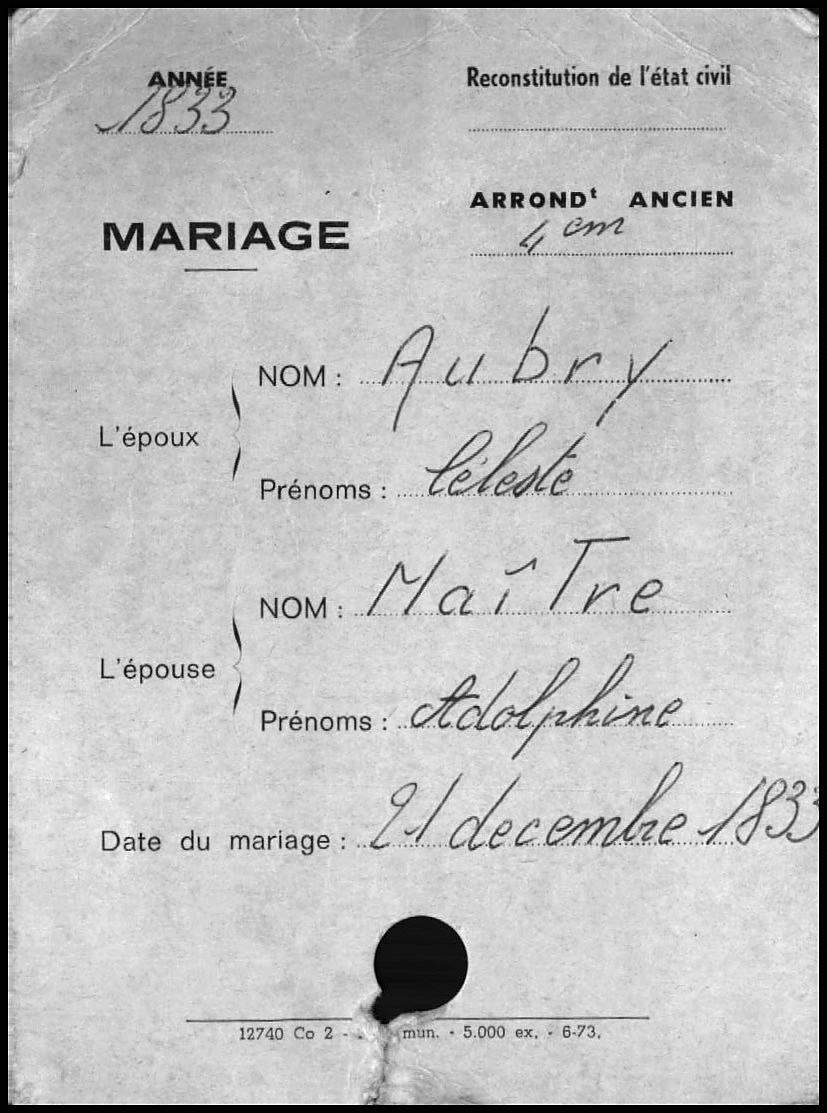 ANNÉE
1833
Reconstitution de l'état civil
ARRONDt ANCIEN
4 em
MARIAGE
L'époux
NOM : Aubry
Prénoms : Céleste
L'épouse
NOM : Maître
Prénoms : Adolphine
Date du mariage : 21 decembre 1833
12740 Co 2 - mun. - 5.000 ex. - 6-73.